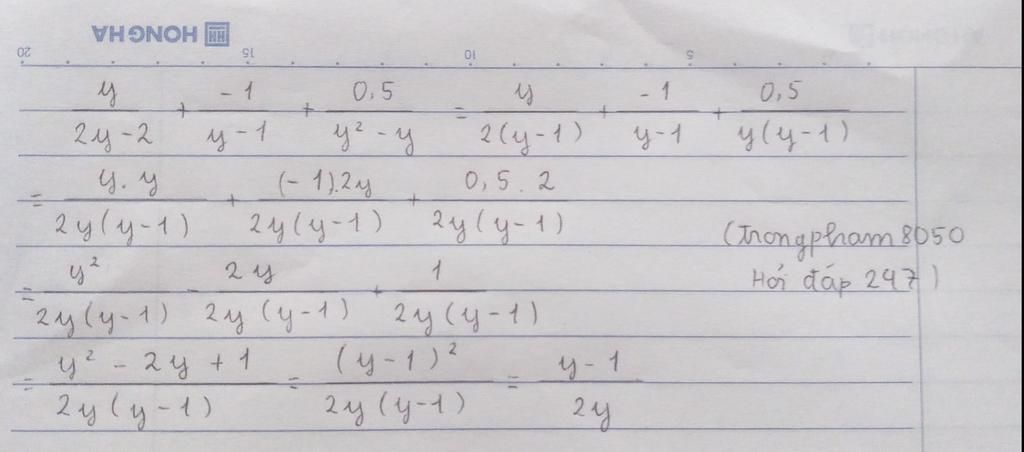 HONG HA
20 15 10 5
y/(2y-2) + -1/(y-1) + 0,5/(y² - y) = y/(2(y-1)) + -1/(y-1) + 0,5/(y(y-1))
= y.y/(2y(y-1)) + (-1).2y/(2y(y-1)) + 0,5.2/(2y(y-1))
(Trongpham8050
= y²/(2y(y-1)) - 2y/(2y(y-1)) + 1/(2y(y-1))
Hỏi đáp 247)
= (y² - 2y + 1)/(2y(y-1)) = (y-1)²/(2y(y-1)) = (y-1)/(2y)